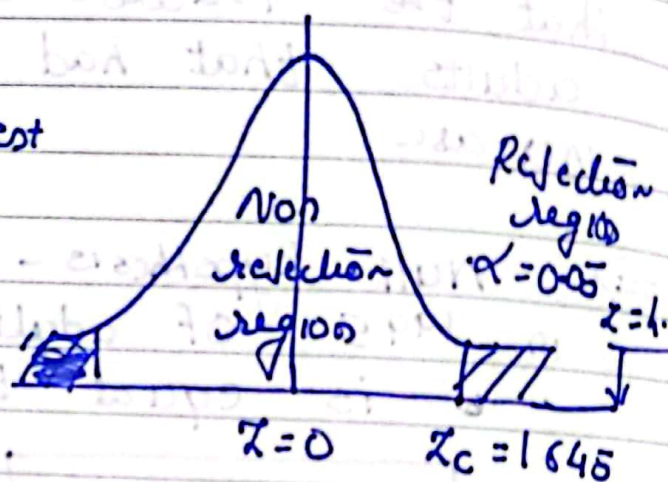 est
Non
rejection
region
Rejection
region
α = 0.05
z = 4.
Z = 0
Zc = 1.645